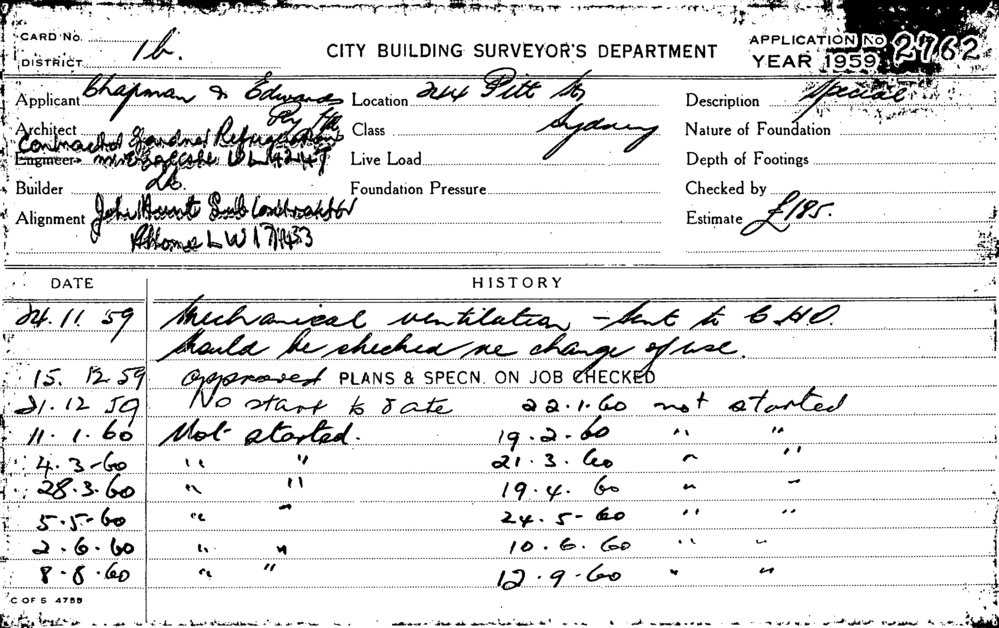 CARD No.
DISTRICT 1b.
CITY BUILDING SURVEYOR'S DEPARTMENT
APPLICATION No 2762
YEAR 1959
Applicant Chapman & Edwards Pty Ltd
Location 244 Pitt St, Sydney
Description Special
Architect
Contractor Refrigeration
Engineer
Class
Nature of Foundation
Live Load
Depth of Footings
Builder
Foundation Pressure
Checked by
Alignment John Sub Contractor
Estimate £195.
DATE HISTORY
24.11.59 Mechanical ventilation - Sent to C.H.O.
Should be checked re change of use.
15.12.59 approved PLANS & SPECN. ON JOB CHECKED
21.12.59 No start to date 22.1.60 not started
11.1.60 Not started. 19.2.60 " "
4.3-60 " " 21.3.60 " "
28.3.60 " " 19.4.60 " "
5-5-60 " " 24.5-60 " "
2.6.60 " " 10.6.60 " "
8-8.60 " " 12.9-60 " "
C OF S 4755